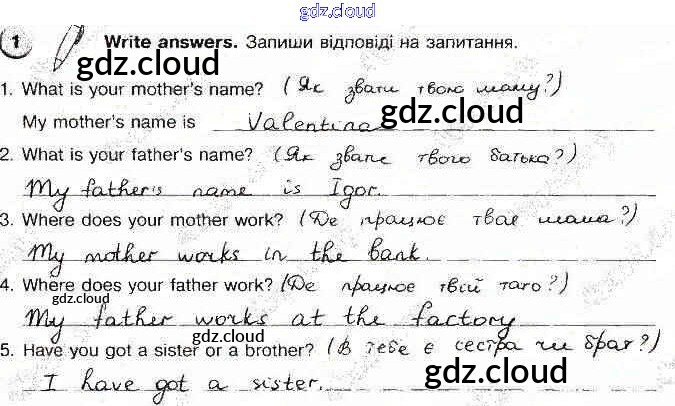 gdz.cloud
1 Write answers. Запиши відповіді на запитання.
gdz.cloud
1. What is your mother's name? (Як звати твою маму?)
My mother's name is Valentina
gdz.cloud
2. What is your father's name? (Як звати твого батька?)
My father's name is Igor.
3. Where does your mother work? (Де працює твоя мама?)
My mother works in the bank.
4. Where does your father work? (Де працює твій тато?)
gdz.cloud
My father works at the factory
gdz.cloud
5. Have you got a sister or a brother? (В тебе є сестра чи брат?)
I have got a sister.
gdz.cloud